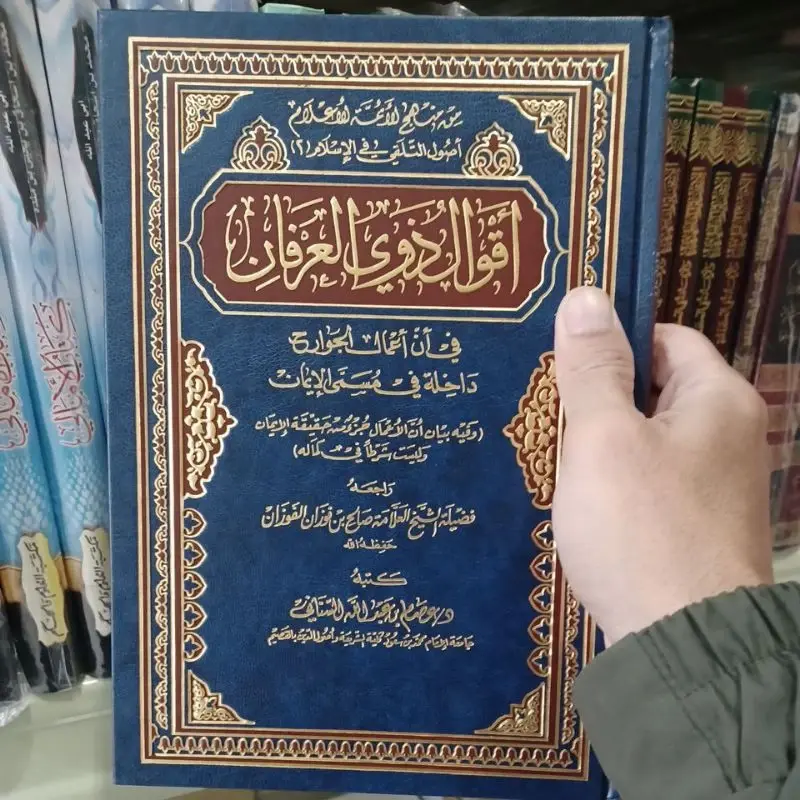 من منهج الأئمة الأعلام
أصول التلقي في الإسلام (٢)
أقوال ذوي العرفان
في أن أعمال الجوارح
داخلة في مسمى الإيمان
(وفيه بيان أن الأعمال جزء من حقيقة الإيمان
وليست شرطاً في كماله)
راجعه
فضيلة الشيخ العلامة صالح بن فوزان الفوزان
حفظه الله
كتبه
د/عصام بن عبد الله السناني
جامعة الإمام محمد بن سعود كلية الشريعة وأصول الدين بالقصيم